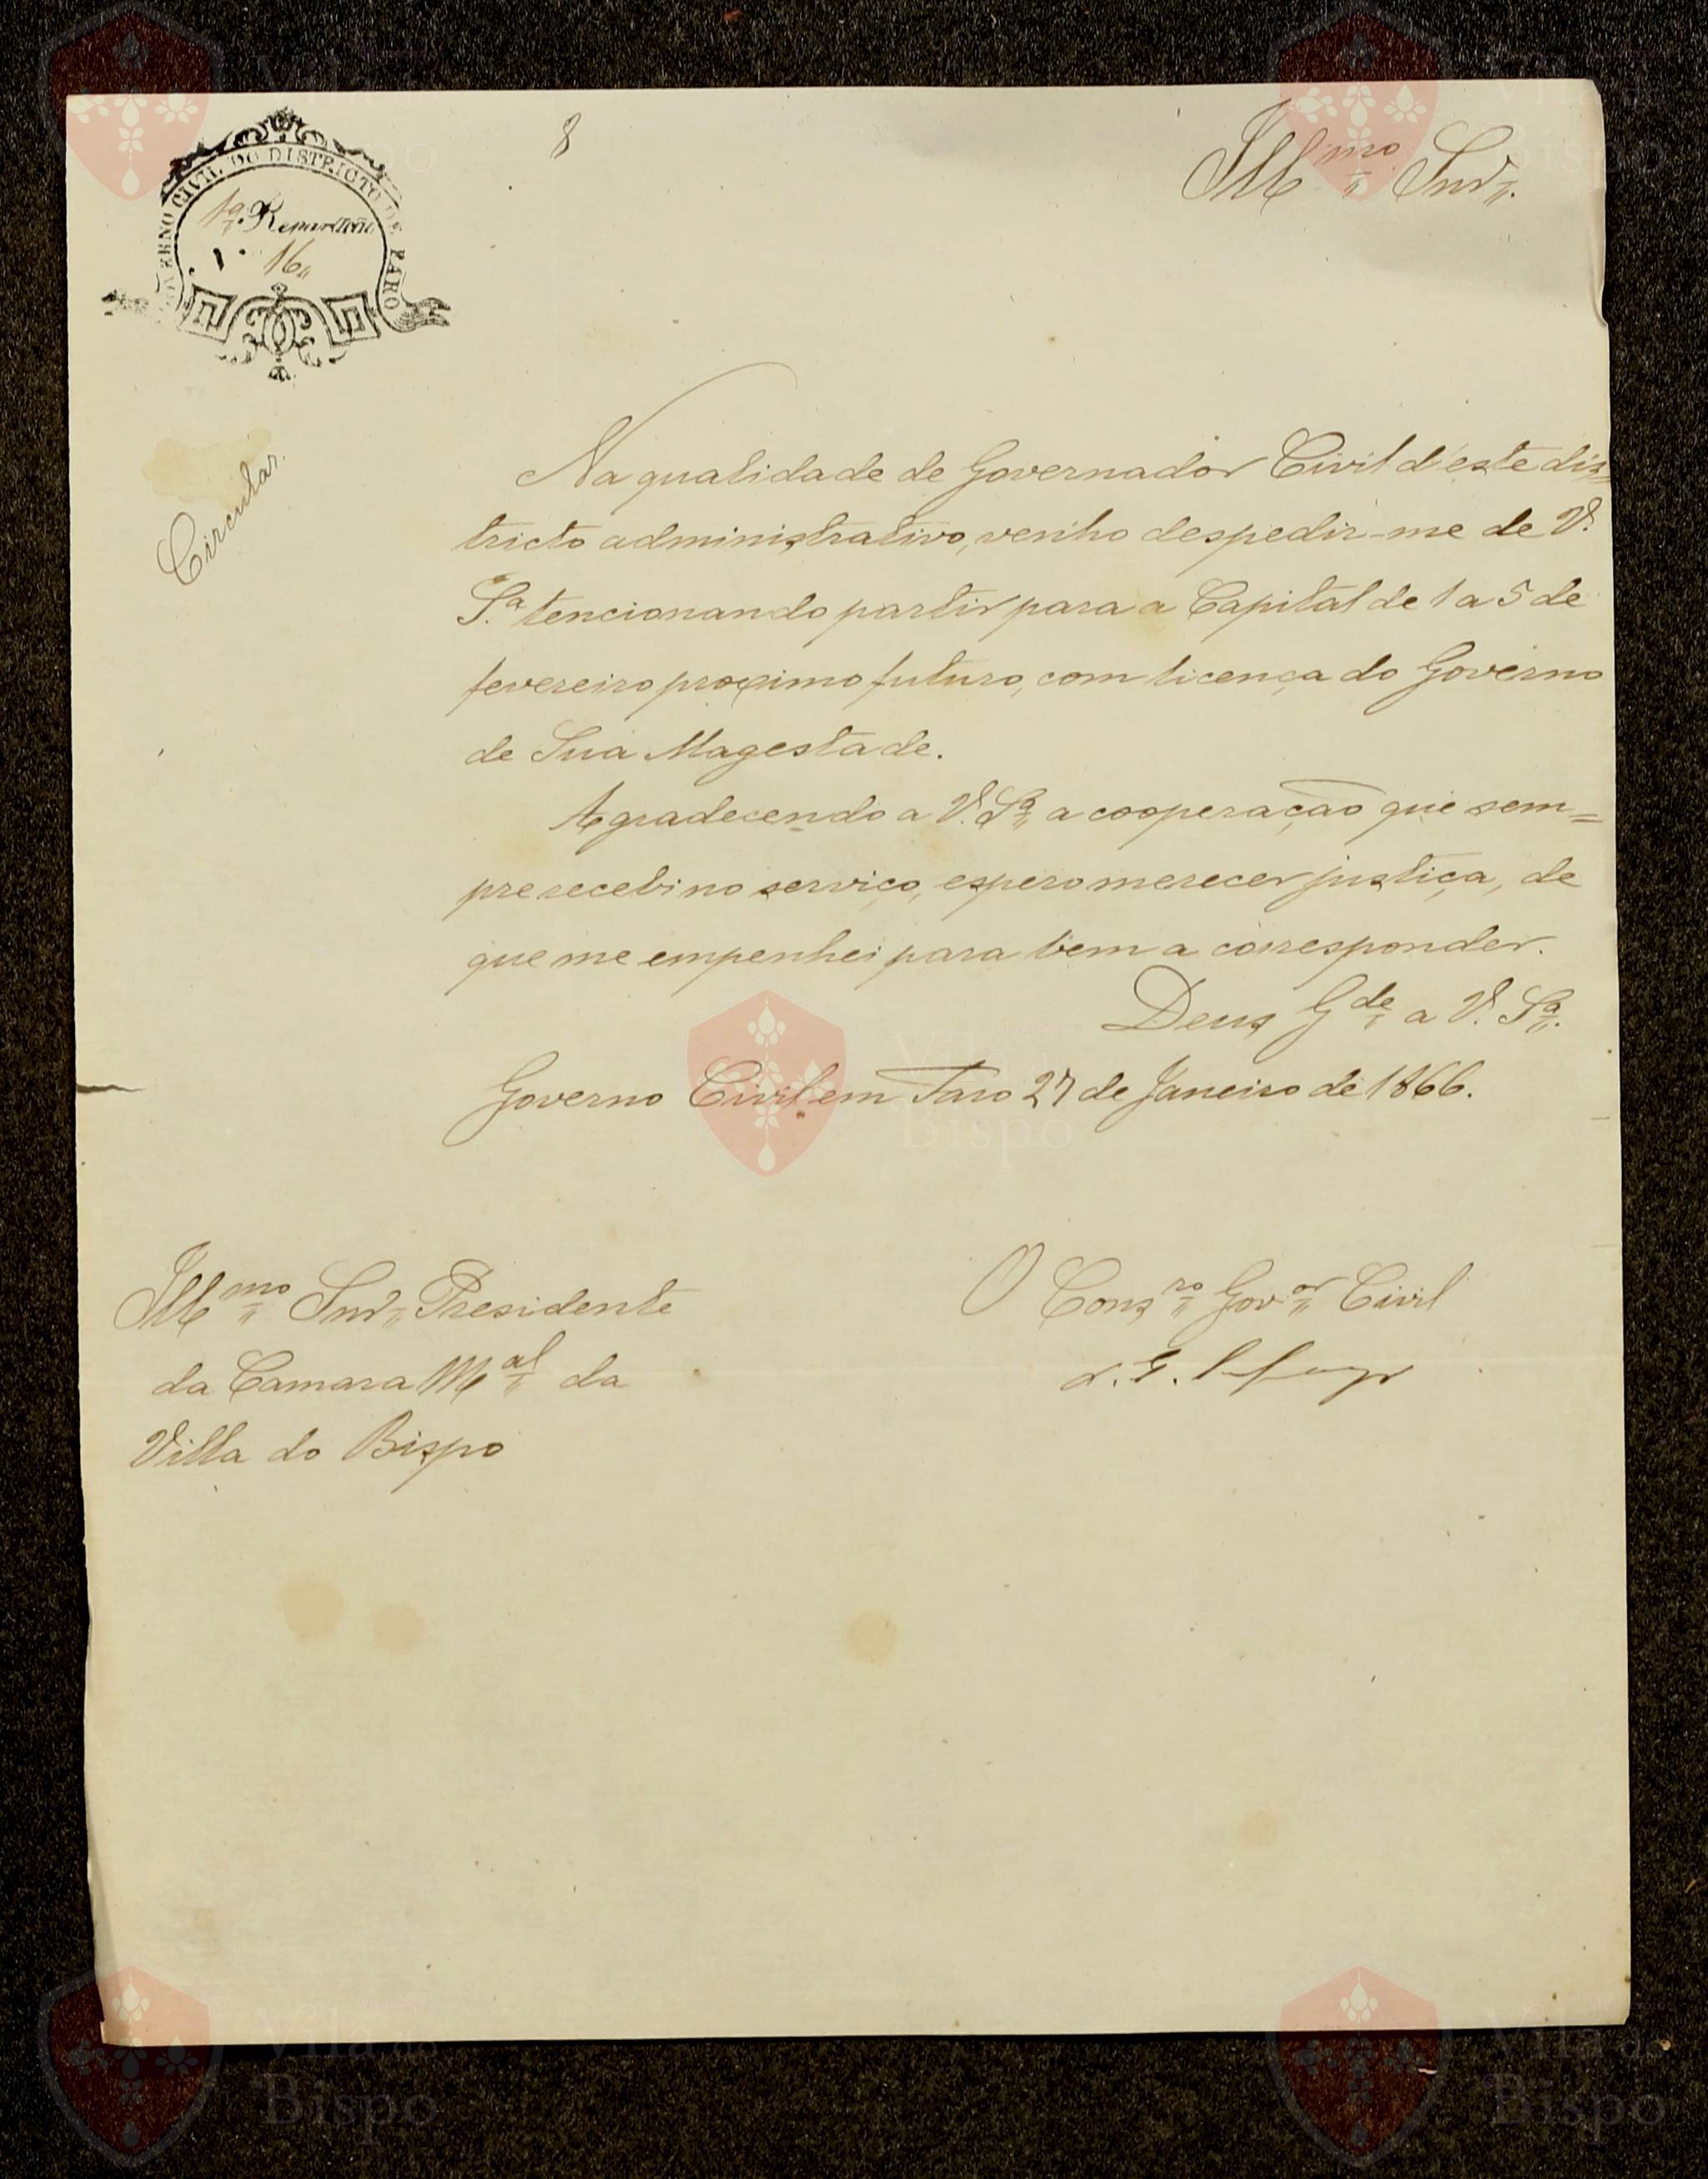 8
Ill.mo Snr.
GOVERNO CIVIL DO DISTRICTO DE FARO
1ª Repartição
16
Circular.
Na qualidade de Governador Civil d'este dis=
tricto administrativo, venho despedir-me de V.
S.ª tencionando partir para a Capital de 1 a 5 de
fevereiro proximo futuro, com licença do Governo
de Sua Magestade.
Agradecendo a V. S.ª a cooperação que sem=
pre recebi no serviço, espero merecer justiça, de
que me empenhei para bem a corresponder.
Deus G.de a V. S.ª
Governo Civil em Faro 27 de Janeiro de 1866.
Ill.mo Snr. Presidente
da Camara M.al da
Villa do Bispo
O Cons.ro Gov.or Civil
Vila do
Bispo